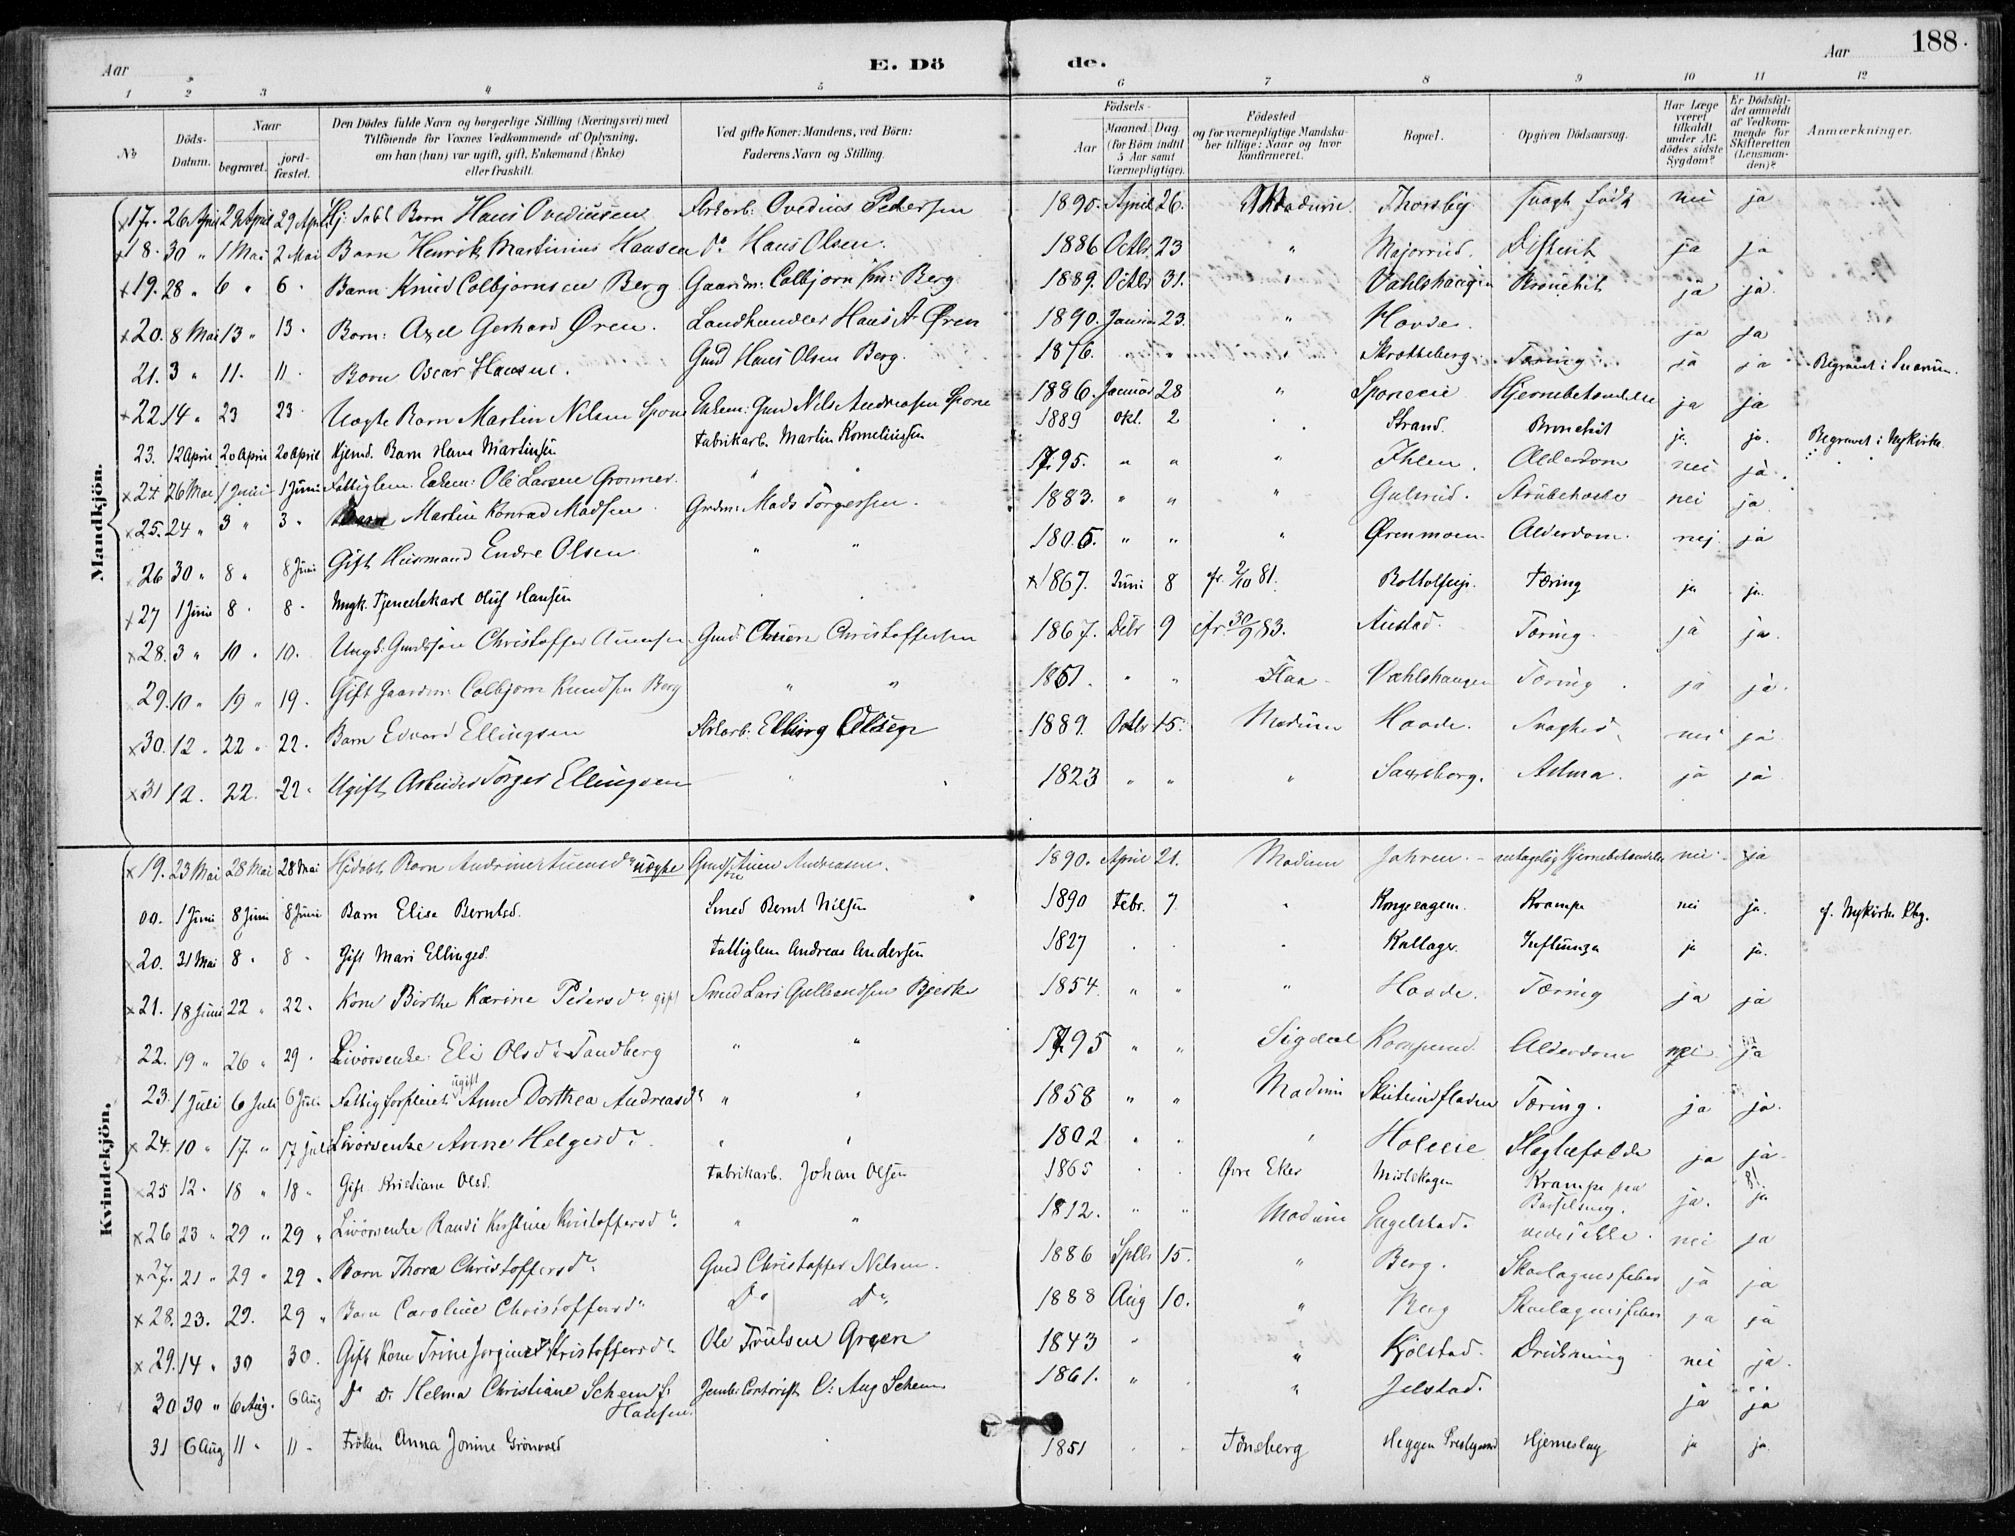 188.
Aar E. Dö de. Aar
1 2 3 4 5 6 7 8 9 10 11 12
No Döds-Datum. Naar begravet. jord-fæstet. Den Dödes fulde Navn og borgerlige Stilling (Næringsvei) med Tilföiende for Voxnes Vedkommende af Oplysning, om han (hun) var ugift, gift, Enkemand (Enke) eller fraskilt. Ved gifte Koner: Mandens, ved Börn: Faderens Navn og Stilling. Födsels- Aar Maaned. Dag (for Börn indtil 5 Aar samt Værnepligtige). Födested og for værnepligtige Mandskaber tillige: Naar og hvor konfirmeret. Bopæl. Opgiven Dödsaarsag. Har Læge været tilkaldt under Afdödes sidste Sygdom? Er Dödsfaldet anmeldt af Vedkommende for Skifteretten (Lensmanden)? Anmærkninger.
Mandkjön.
17. 26 April 29 April 29 April Hj: døbt Barn Hans Ovediusen Ovedius Pedersen 1890. April 26. Modum. Thorsby Svagt født nei ja
18. 30 " 1 Mai 2 Mai Barn Henrik Martinius Hansen Do Hans Olsen. 1886 Octb 23 " Majorrud. Difterit ja ja
19. 28 " 6 " 6 " Barn Knud Colbjørnsen Berg Gaardm: Colbjørn Kn: Berg 1889. Octb 31. " Vahlshaugen Bronchit ja ja.
20. 8 Mai 13 " 13 " Barn: Axel Gerhard Øren. Landhandler Hans A Øren 1890. Januar 23. " Hovde. ja ja
21. 3 " 11. 11 Barn Oscar Hansen. Gmd Hans Olsen Berg. 1876. " " Skrotteberg Tæring ja ja Begravet i Snarum.
22 14 " 23 23 Uægte Barn Martin Nilsen Spone Enkem: Gmd Nils Andreasen Spone 1886. Januar 28 " Sponeeie Hjernebetændelse ja ja
23. 12 April 20 April 20 April Hjemd. Barn Hans Martinsen Fabrikarb. Martin Korneliussen 1889 Okt. 2 " Strand. Bronchit ja. ja. Begravet i Nykirke
24 26 Mai 1 Juni 1 Juni Fattiglem. Enkem: Ole Larsen " " 1795. " " " Ihlen. Alderdom nei ja.
25. 24 " 3 " 3 " Barn Martin Konrad Madsen Grdm: Mads Torgersen. 1883. " " " Gulsrud. Strubehoste nei ja.
26 30 " 8 " 8 Juni Gift Husmand Endre Olsen " " 1805. " " " Ørenmoen Alderdom. nej ja
27 1 Juni 8 " 8 " Ungk. Tjenestekarl Oluf Hansen " " 1867. Juni 8 cfr. 2/10 81. Tæring ja ja.
28. 3 " 10 " 10. Ungk: Gmdsøn Christoffer Gmd: Christoffersen 1867. Debr 9 cfr 30/9 83. Austad. Tæring. ja ja.
29. 10 " 19 " 19. Gift Gaardm: Colbjørn Knudsen Berg " " 1861. " " Flaa Vahlshaugen Tæring ja ja.
30. 12 " 22 " 22. Barn Edvard Ellingsen Elling Olsen 1889. Octb 15. Modum Hovde. Svaghed nei ja
31 12. 22. 22. Ugift Arbeider Torger Ellingsen " " 1823 " " " Astma. ja ja
Kvindekjön.
19. 23 Mai 28 Mai 28 Mai Hjdøbt Barn uægte Andreasen. 1890. April 21. Modum Jahren. Hjernebetændelse nei ja
00. 1 Juni 8 Juni 8 Juni Barn Elise Berntsd. Smed Bernt Nilsen 1890 Febr. 7 " Krampe nei ja. cf. Nykirke Kbg.
20. 31 Mai 8 " 8 " Gift Mari Ellingsd. Fattiglem Andreas Andersen 1827 " " " Kallager Influenza ja ja.
21. 18 Juni 22 " 22. Kone Birthe Karine Pedersdr gift Smed Lars Gulbrandsen Bjerke 1854 " " " Hovde. Tæring ja ja
22. 19 " 26 " 29 " Livørsenke Eli Olsdr Sandberg " " 1795 " " Sigdal Alderdom nei ja
23. 1 Juli 6 Juli 6 Juli Fattigforpleiet ugift Anne Dorthea Andreasdr " " 1858 " " Modum Skutrudfladen Tæring. ja ja.
24. 10 " 17. " 17 Juli Livørsenke Anne Helgesdr. " " 1802 " " " Holeeie ja ja.
25 12. 18 " 18 " Gift Kristiane Olsd. Fabrikarb. Johan Olsen 1865 " " Øvre Eker Krampe paa Barselseng. ja. ja
26 23 " 29 " 29 " Livørsenke Randi Kirstine Kristoffersdr. " " 1812. " " Modum Engelstad. vedes ikke. nei ja
27. 21 " 29 " 29 " Barn Thora Christoffersdr. Gmd Christoffer Nilsen. 1886 Septb 15. " Berg. Skarlagensfeber ja ja
28. 23. 29. 29 " Barn Caroline Christoffersdr Do Do 1888 Aug 10. " Berg Skarlagensfeber ja ja
29. 14 " 30 30. Gift Kone Trine Jorgine Kristoffersdr. Ole Trulsen Green 1843 " " Kjølstad. Drukning nei ja.
30 30 " 6 Aug. 6 Aug Do Do Helma Christiane Schem f. Hansen. Contorist C: Aug Schem 1861. " " Jelstad. ja ja
31 6 Aug 11 " 11 " Frøken Anna Jonine Grønvold 1851 " " Tønsberg Heggen Prestegaard Hjerneslag ja ja.